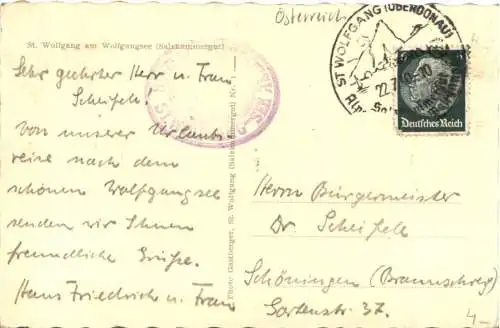 Österreich
St. Wolfgang am Wolfgangsee (Salzkammergut)
Sehr geehrter Herr u. Frau
Scheifele.
Von unserer Urlaubs-
reise nach dem
schönen Wolfgangsee
senden wir Ihnen
freundliche Grüsse.
Hans Friedrich u. Frau
Photo Gastberger, St. Wolfgang (Salzkammergut) Nr.
ST. WOLFGANG (OBERDONAU)
22.7.
Deutsches Reich
Herrn Bürgermeister
Dr. Scheifele
Schöningen (Braunschweig)
Gartenstr. 37.
4-